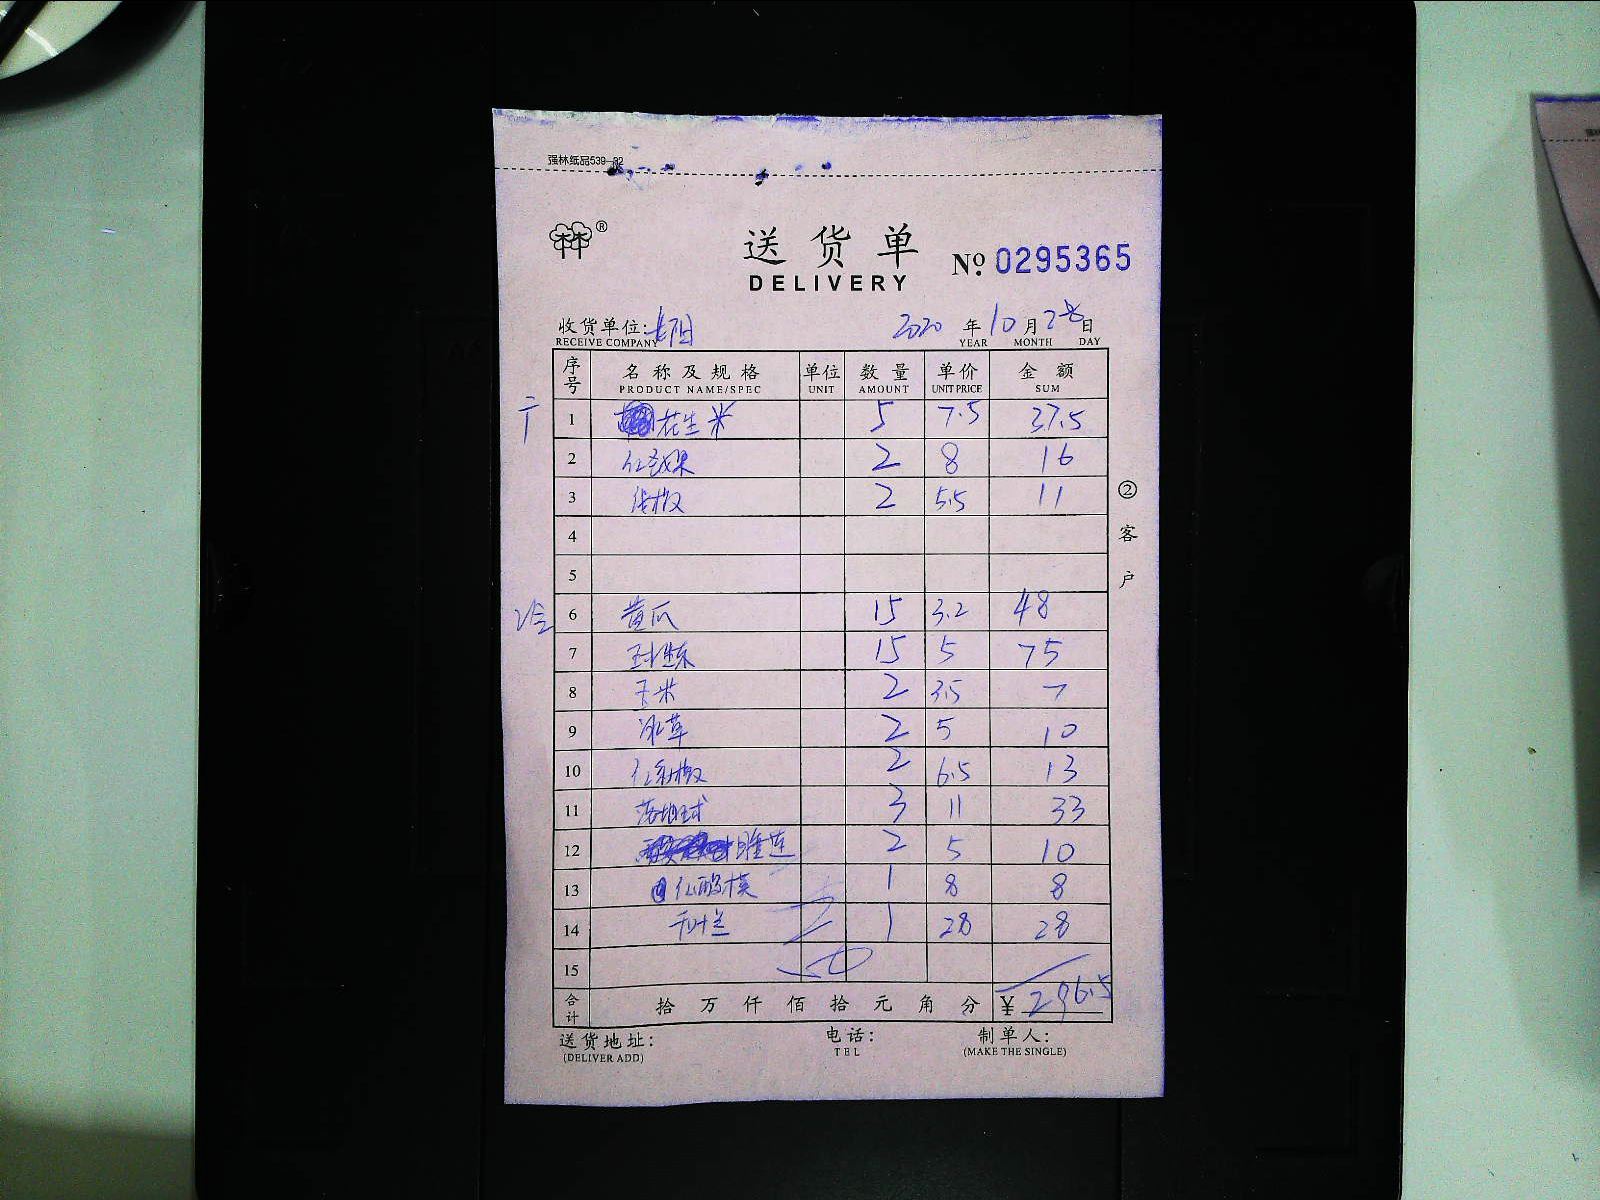 强林纸品539-92
林®
送货单 № 0295365
DELIVERY
收货单位: 2020 年 10 月 28 日
RECEIVE COMPANY YEAR MONTH DAY
序号 名称及规格 单位 数量 单价 金额
PRODUCT NAME/SPEC UNIT AMOUNT UNIT PRICE SUM
干 1 花生米 5 7.5 37.5
2 2 8 16
3 线椒 2 5.5 11
4
5
冷 6 黄瓜 15 3.2 48
7 球生菜 15 5 75
8 玉米 2 3.5 7
9 冰草 2 5 10
10 红彩椒 2 6.5 13
11 落地球 3 11 33
12 睡莲 2 5 10
13 红酸模 1 8 8
14 千叶兰 1 28 28
15
合计 拾万仟佰拾元角分 ¥ 296.5
送货地址: 电话: 制单人:
(DELIVER ADD) TEL (MAKE THE SINGLE)
②客户